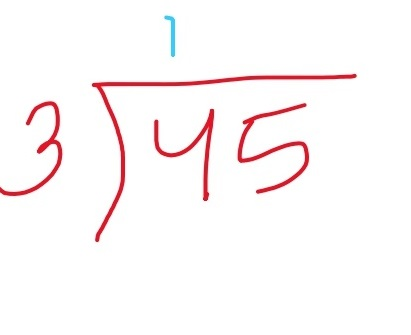 1
3)45